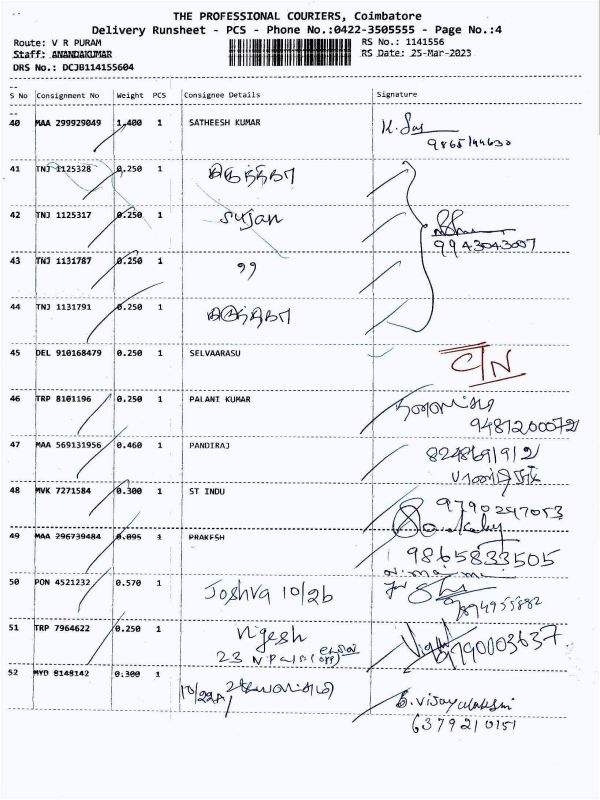 THE PROFESSIONAL COURIERS, Coimbatore
Delivery Runsheet - PCS - Phone No.:0422-3505555 - Page No.:4
Route: V R PURAM RS No.: 1141556
Staff: ANANDAKUMAR RS Date: 25-Mar-2023
DRS No.: DCJB114155604
S No Consignment No Weight PCS Consignee Details Signature
40 MAA 299929049 1.400 1 SATHEESH KUMAR
41 TNJ 1125328 0.250 1
42 TNJ 1125317 0.250 1 Sujan
9943043007
43 TNJ 1131787 0.250 1 "
44 TNJ 1131791 0.250 1
45 DEL 910168479 0.250 1 SELVAARASU C/N
46 TRP 8101196 0.250 1 PALANI KUMAR
9481200072
47 MAA 569131956 0.460 1 PANDIRAJ 8248691912
48 MVK 7271584 0.300 1 ST INDU 9790247053
49 MAA 296739484 0.095 1 PRAKESH 9865833505
50 PON 4521232 0.570 1 Joshva 10/26
9894955882
51 TRP 7964622 0.250 1 Vigesh 9790003637
23
52 MYD 8148142 0.300 1 10/22A B. Vijayalakshmi
6379210151